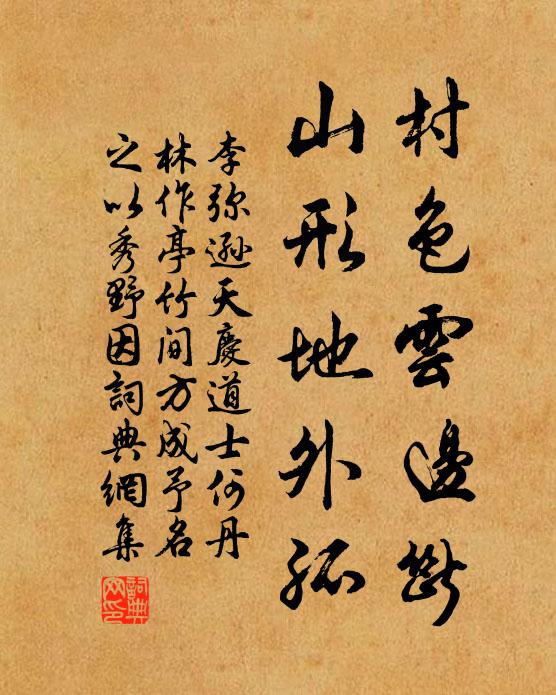 村色雲邊斷
山形地外孤
李弥遜天慶道士何丹
林作亭竹间方成予名
之以秀野因詞典網集
詞典网印